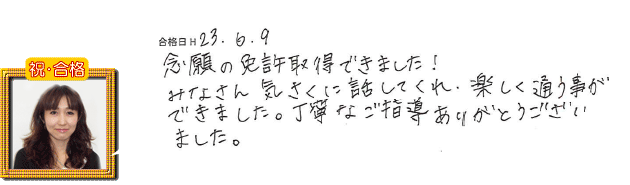 合格日H23.6.9
祝・合格
念願の免許取得できました!
みなさん気さくに話してくれ、楽しく通う事が
できました。丁寧なご指導ありがとうござい
ました。